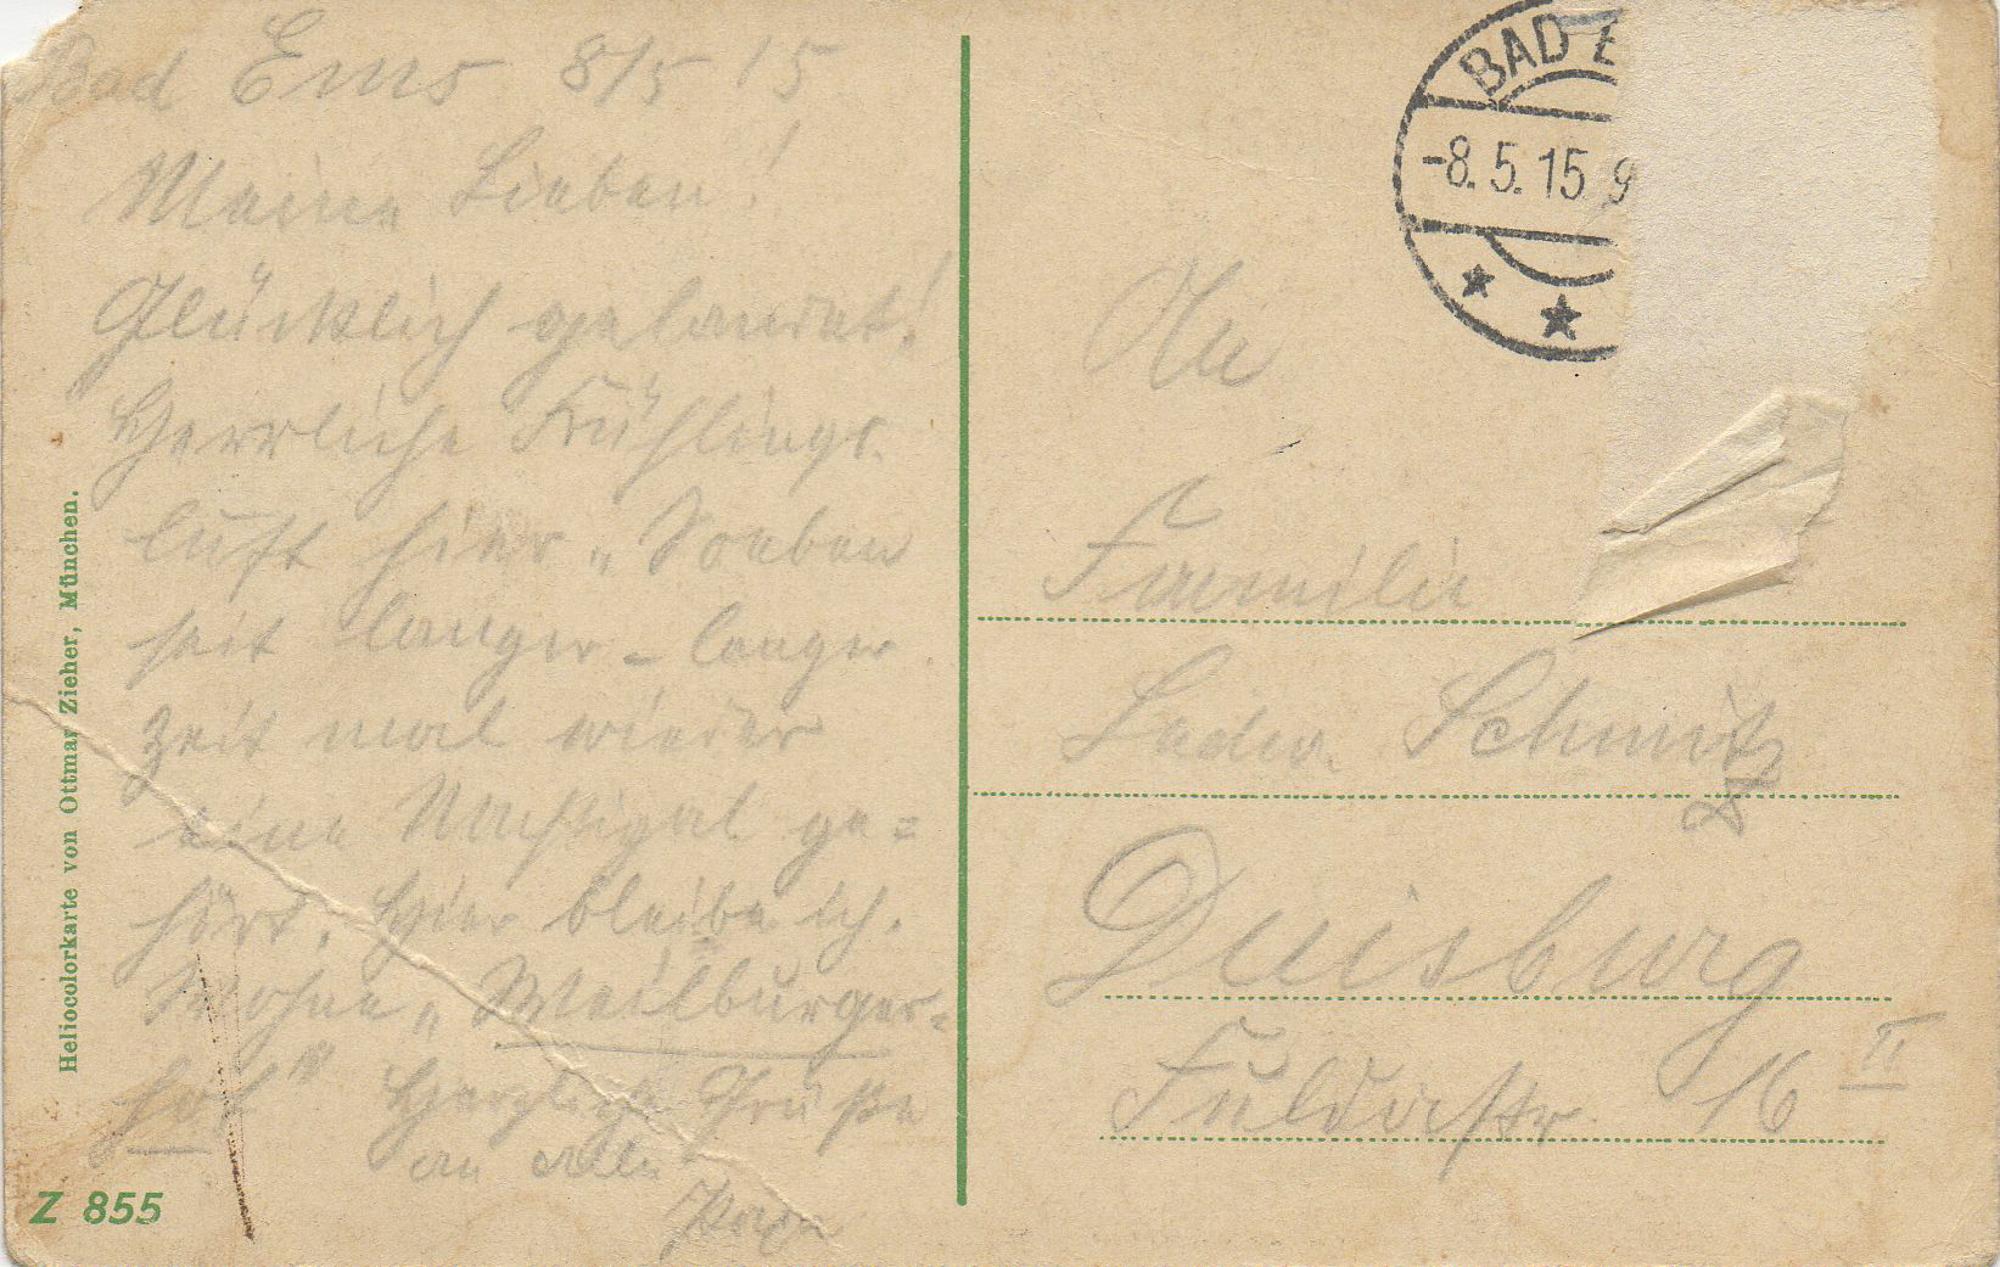 Bad Ems 8/5 15
Meine Lieben!
Glücklich gelandet!
Herrliche Frühlings-
luft hier. Soeben
seit langer - langer
Zeit mal wieder
eine Nachtigal ge=
hört. Hier bleibe ich.
Wohne „Weilburger=
hof" Herzliche Grüße
an alle
Papa
Heliocolorkarte von Ottmar Zieher, München.
Z 855
BAD E
-8.5.15 9
An
Familie
Ludw. Schmitz
Duisburg
Fuldastr. 16 II